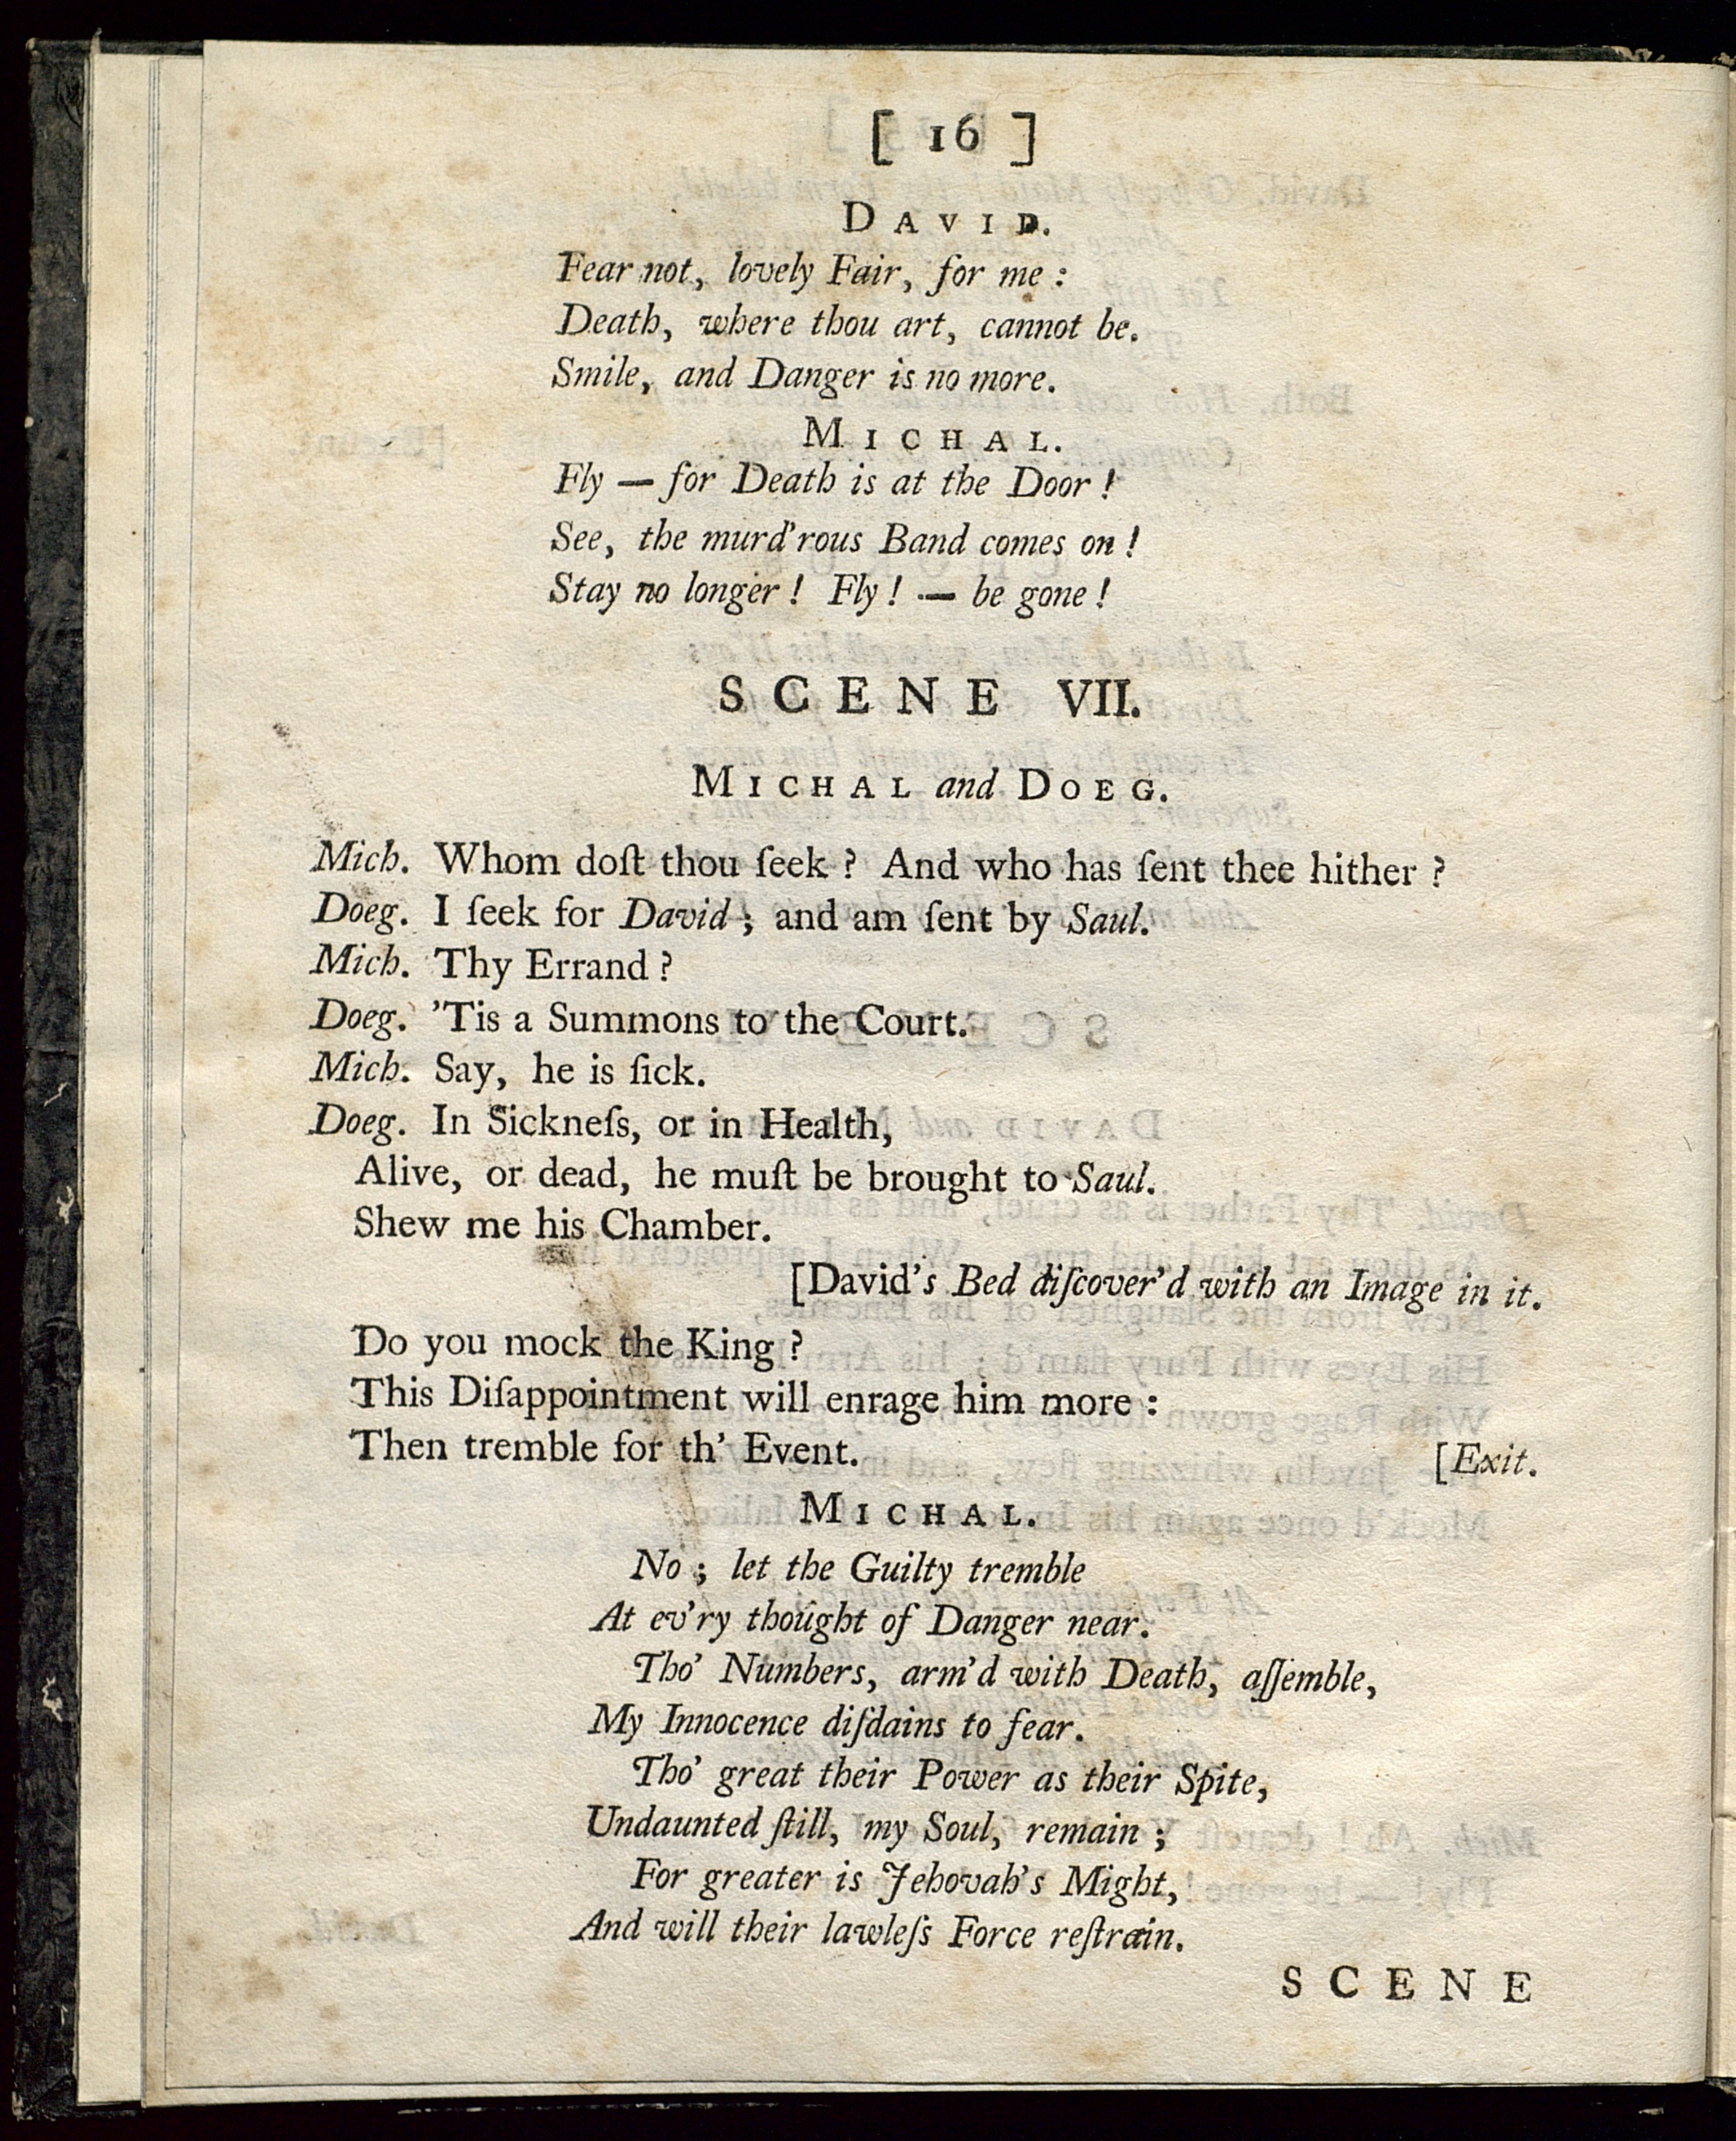 [ 16 ]
DAVID.
Fear not, lovely Fair, for me :
Death, where thou art, cannot be.
Smile, and Danger is no more.
MICHAL.
Fly — for Death is at the Door !
See, the murd'rous Band comes on !
Stay no longer ! Fly ! — be gone !
SCENE VII.
MICHAL and DOEG.
Mich. Whom doſt thou ſeek ? And who has ſent thee hither ?
Doeg. I ſeek for David ; and am ſent by Saul.
Mich. Thy Errand ?
Doeg. 'Tis a Summons to the Court.
Mich. Say, he is ſick.
Doeg. In Sickneſs, or in Health,
Alive, or dead, he muſt be brought to Saul.
Shew me his Chamber.
[David's Bed diſcover'd with an Image in it.
Do you mock the King ?
This Diſappointment will enrage him more :
Then tremble for th' Event. [Exit.
MICHAL.
No ; let the Guilty tremble
At ev'ry thought of Danger near.
Tho' Numbers, arm'd with Death, aſſemble,
My Innocence diſdains to fear.
Tho' great their Power as their Spite,
Undaunted ſtill, my Soul, remain ;
For greater is Jehovah's Might,
And will their lawleſs Force reſtrain.
SCENE